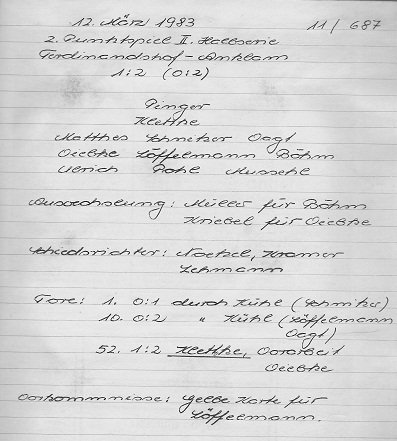 12. März 1983 11/687
2. Punktspiel II. Halbserie
Ferdinandshof - Anklam
1:2 (0:2)
Pinger
Klethke
Matthes Schmitzer Vagt
Dietke Löffelmann Böhm
Ulrich Pohl Musse
Auswechslung: Müller für Böhm
Kriebel für
Schiedsrichter: Noetzel, Kramer
Lehmann
Tore: 1. 0:1 durch Kühl (
10. 0:2 " Kühl (Löffelmann
Vagt)
52. 1:2 Klethke, Vorarbeit
Vorkommnisse: Gelbe Karte für
Löffelmann.